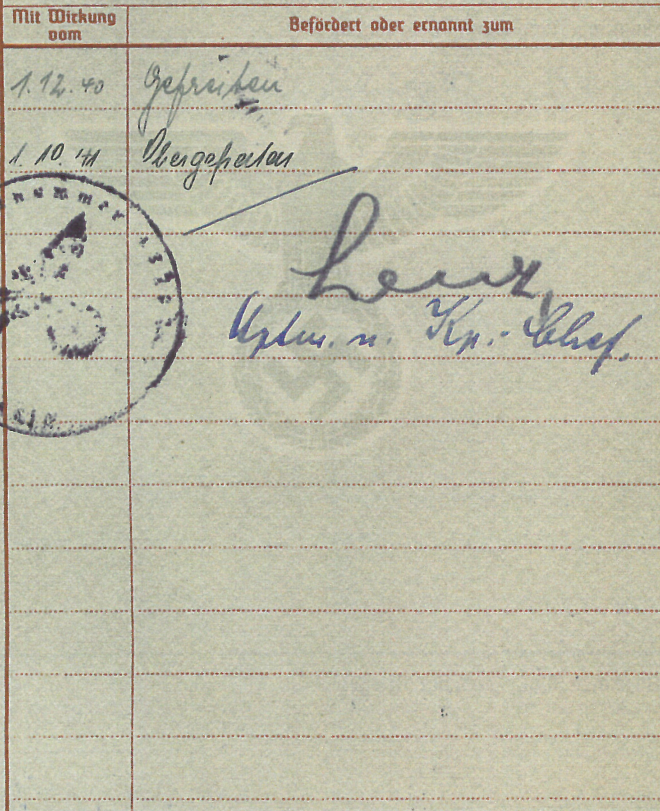 Mit Wirkung vom
Befördert oder ernannt zum
1.12.40 Gefreiten
1.10.41 Obergefreiten
Lenz
Hptm. u. Kp.-Chef.